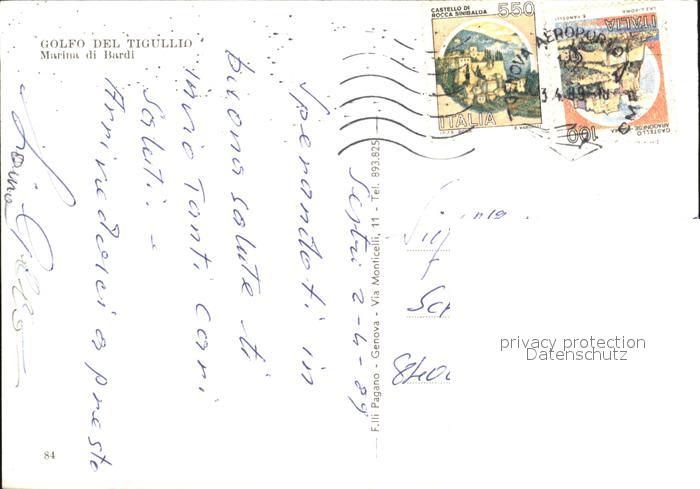 GOLFO DEL TIGULLIO
Marina di Bardi
CASTELLO DI
ROCCA SINIBALDA
550
ITALIA
ITALIA
CASTELLO
ARAGONESE
100
GENOVA AEROPORTO
3.4.89
Sestri 2-4-89
Sperandoti in
buona salute ti
invio tanti cari
saluti. -
Arrivederci a presto
F.lli Pagano - Genova - Via Monticelli, 11 - Tel. 893.825
privacy protection
Datenschutz
84